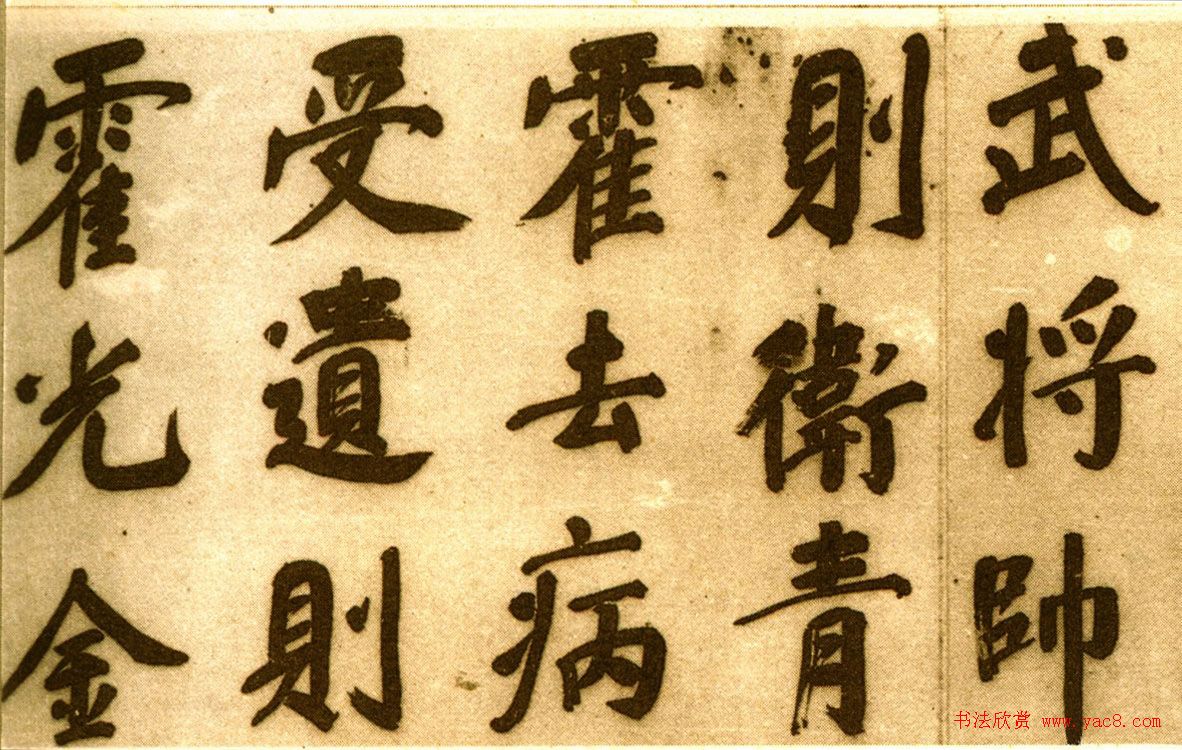 武將帥
則衛青
霍去病
受遺則
霍光金
书法欣赏 www.yac8.com